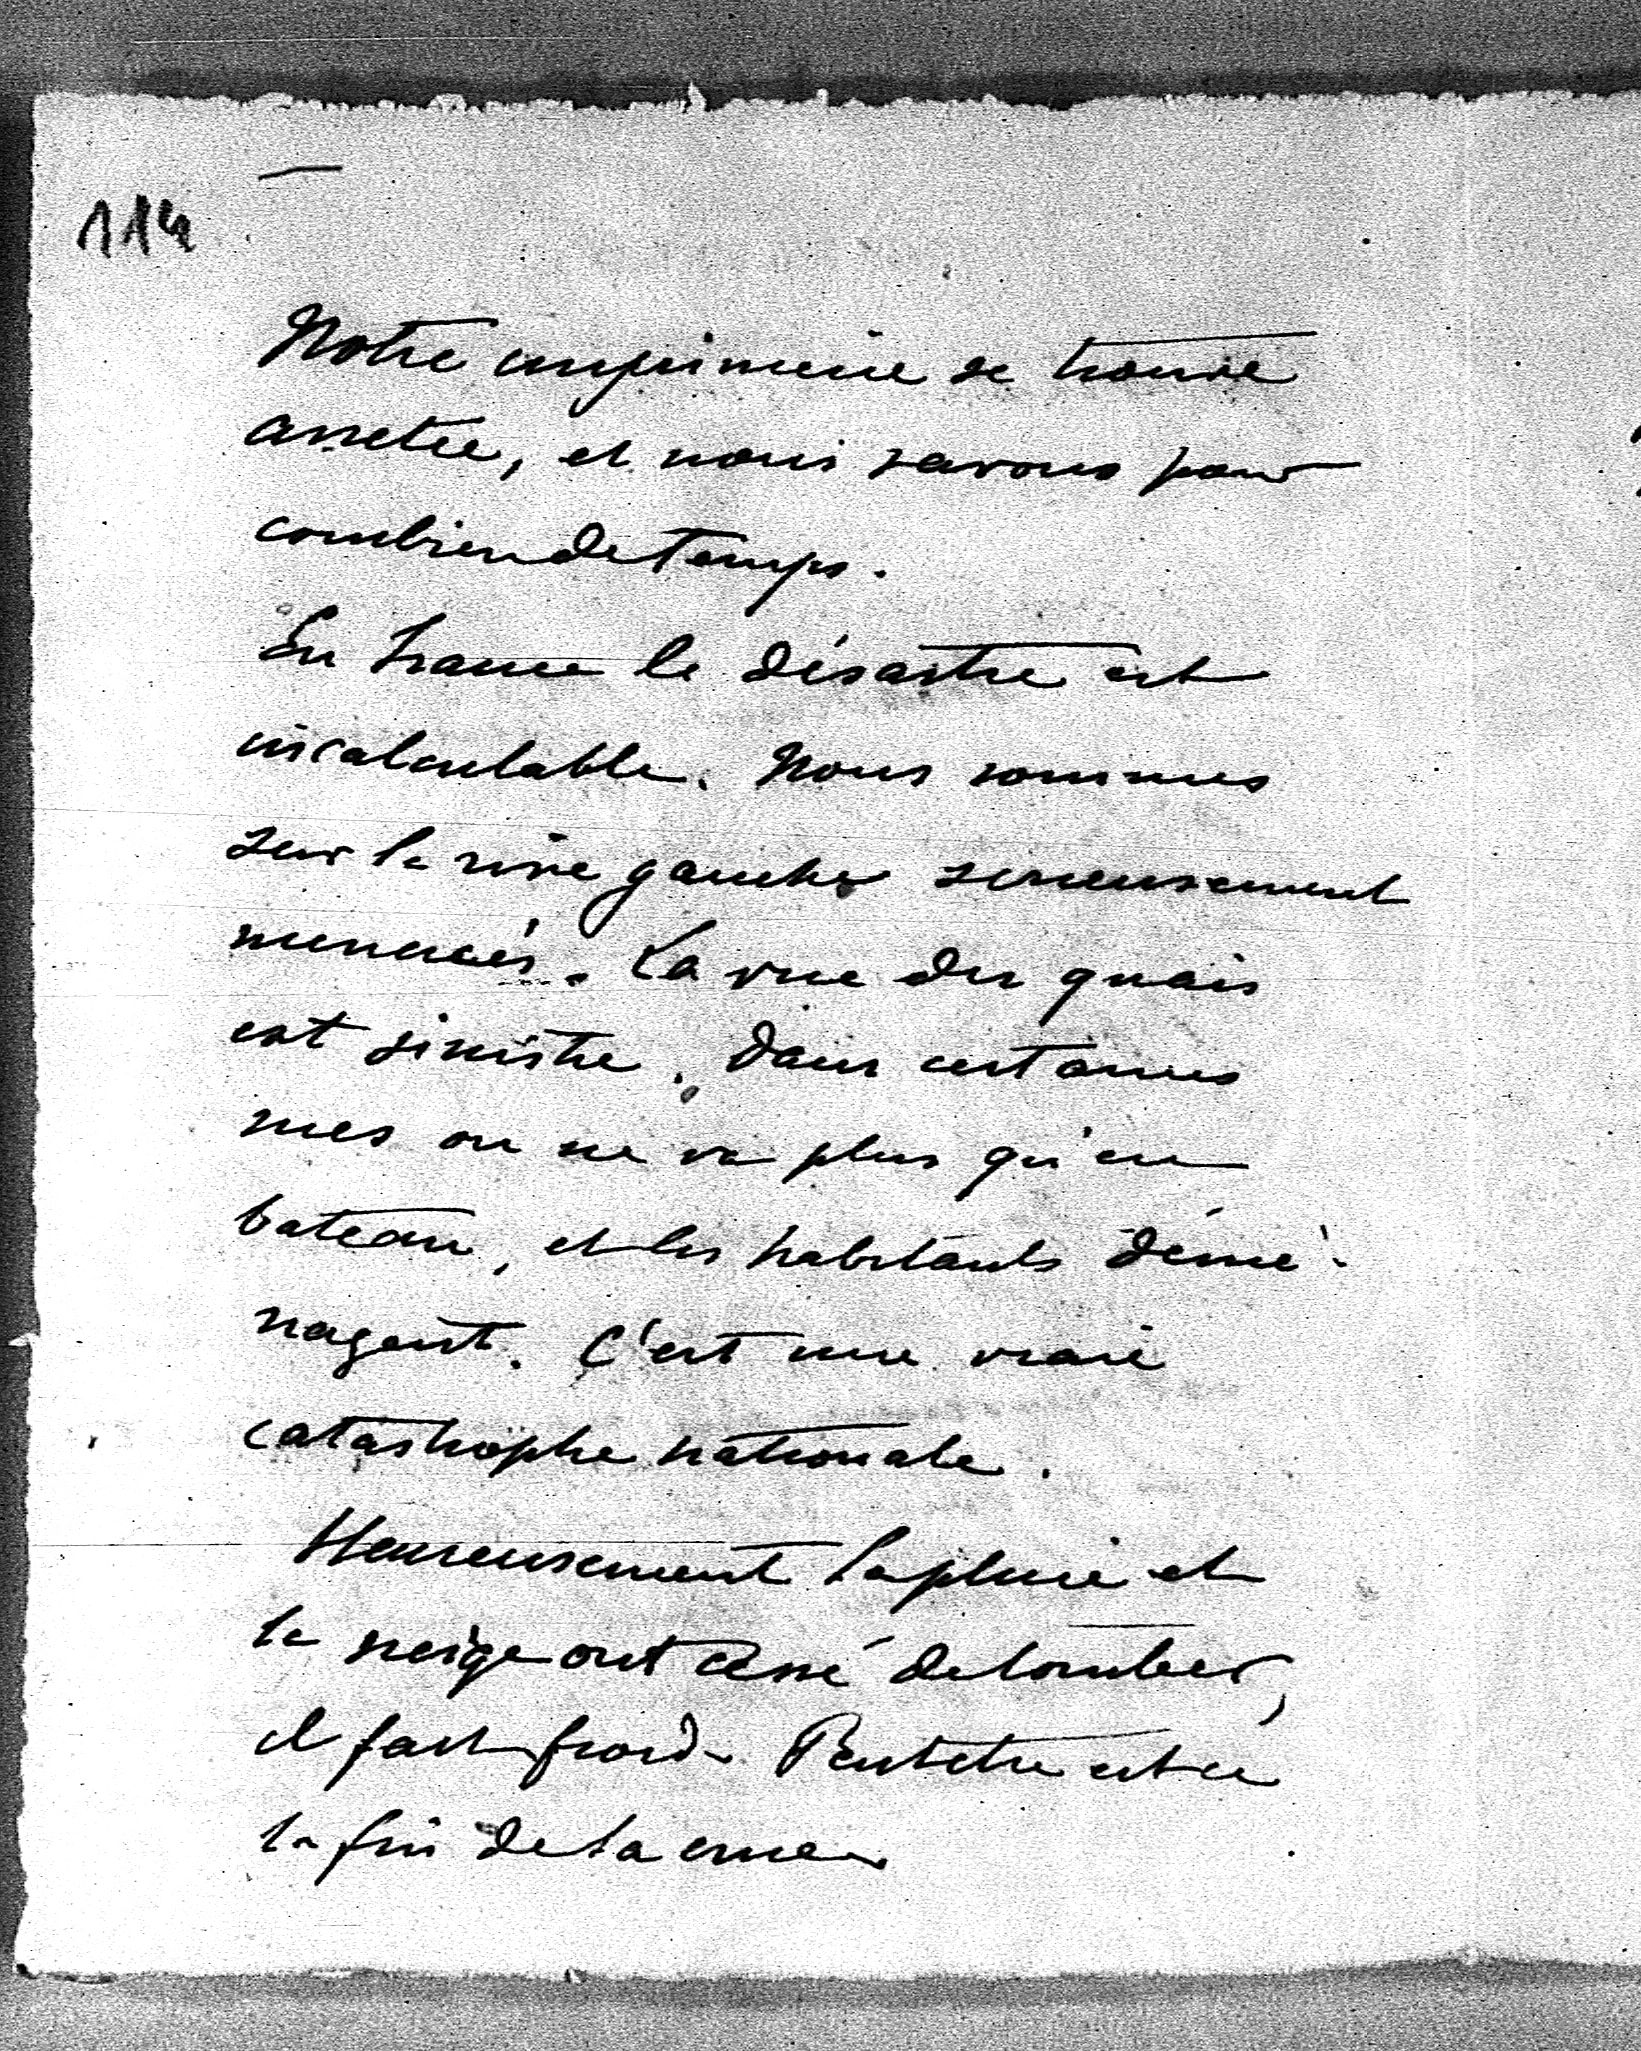 114
Notre imprimerie se trouve
arretée, et nous savons pour
combien de temps.
En France le désastre est
incalculable. Nous sommes
sur la rive gauche serieusement
menacés. La vue des quais
est sinistre. Dans certaines
rues on ne va plus qu'en
bateau, et les habitants démé-
nagent. C'est une vraie
catastrophe nationale.
Heureusement la pluie et
la neige ont cessé de tomber,
il fait froid. Peut etre est ce
la fin de la crue.